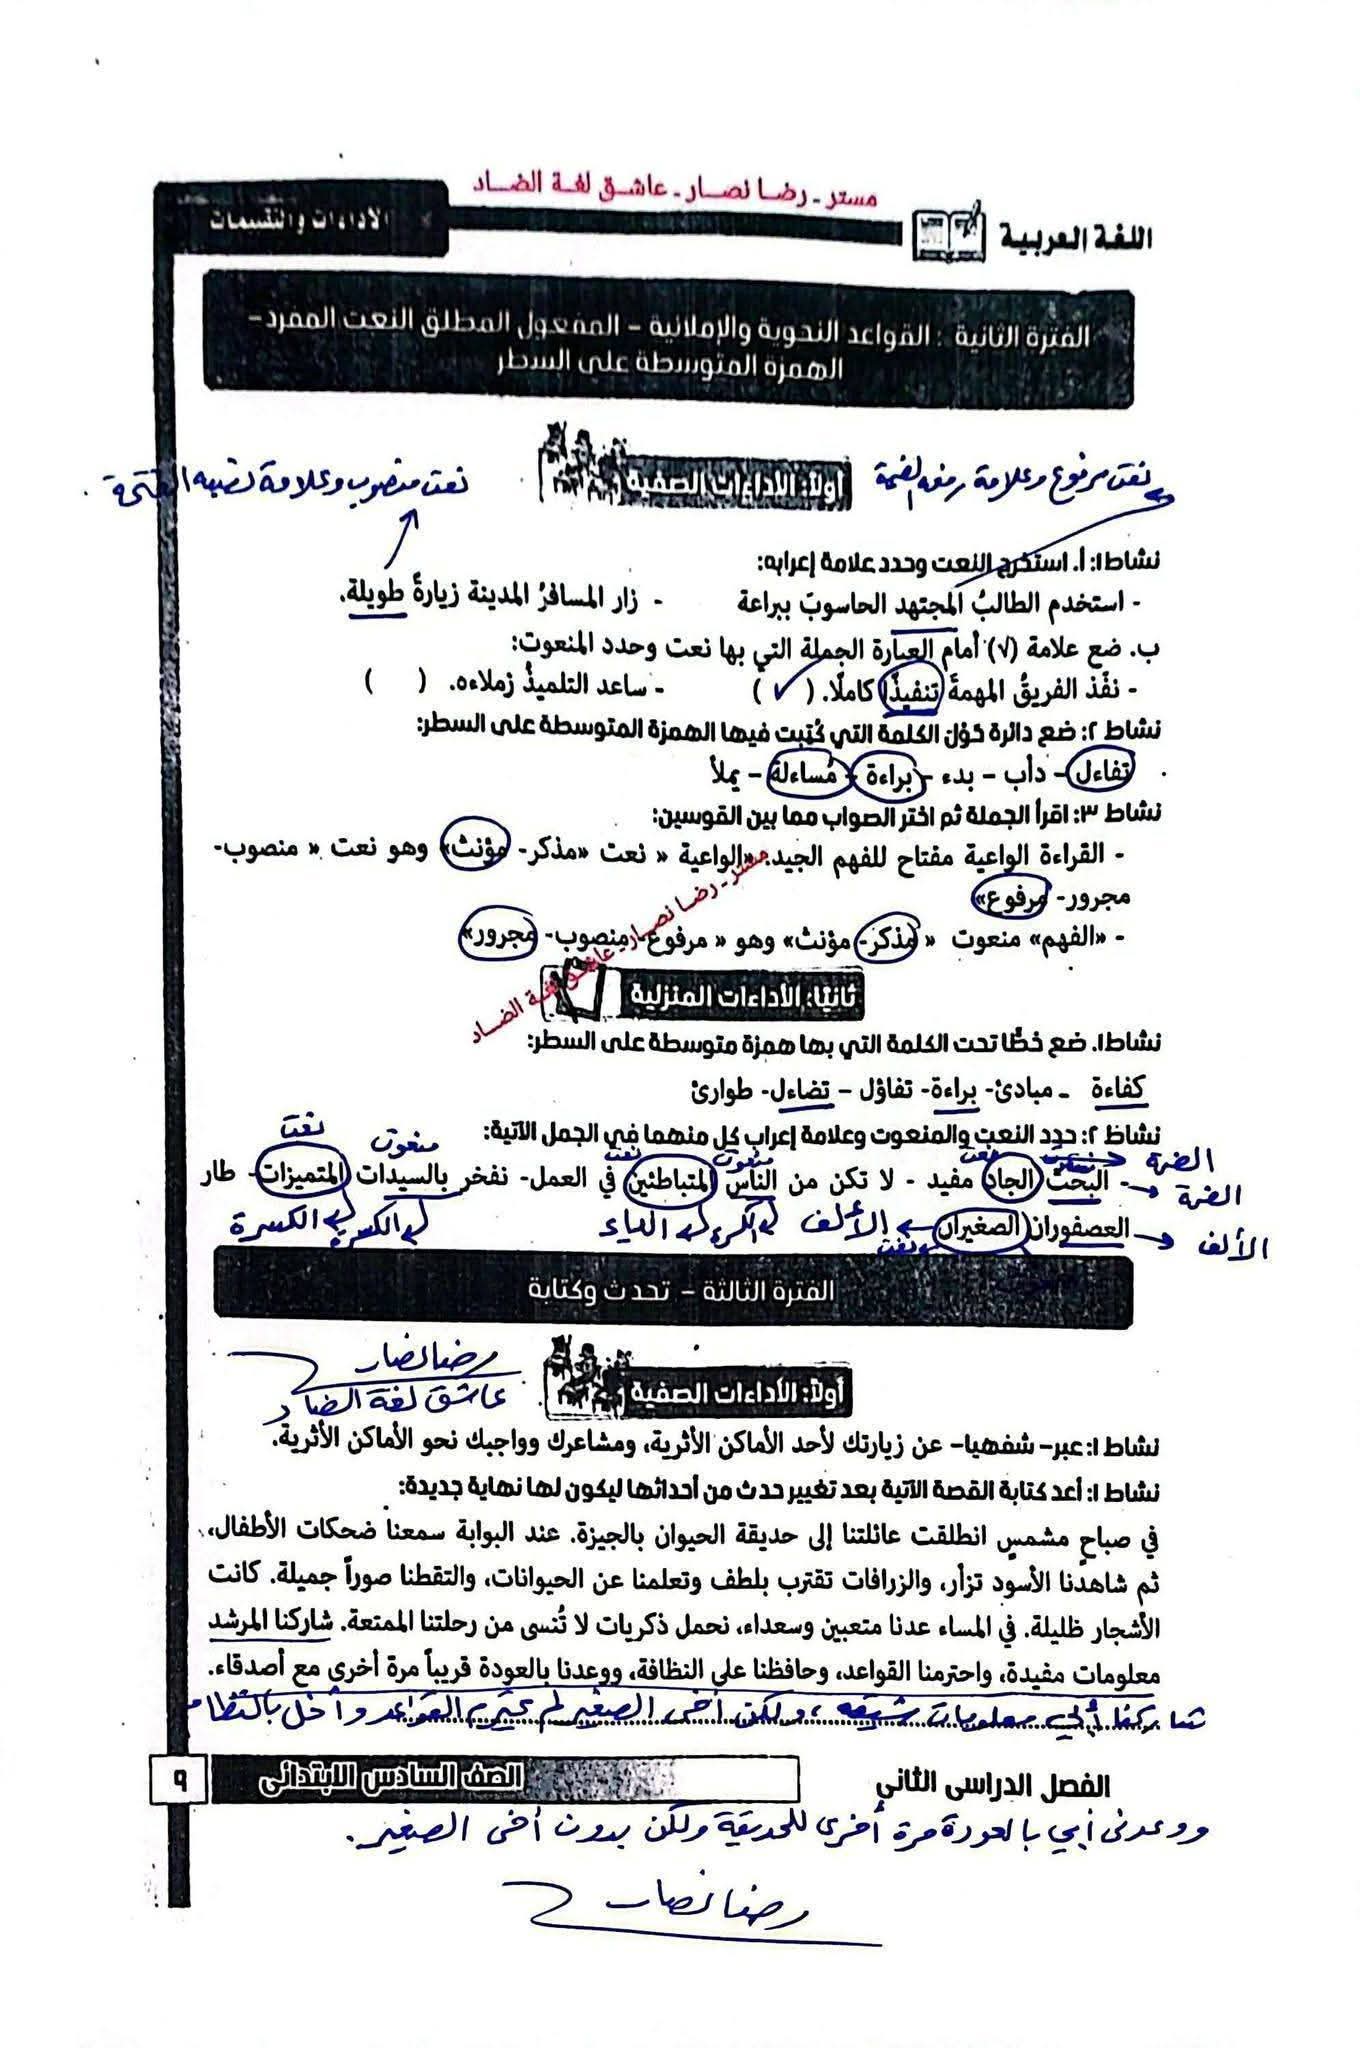 مستر - رضا نصار - عاشق لغة الضاد
اللغة العربية
الأداءات والتقييمات
الفترة الثانية : القواعد النحوية والإملائية – المفعول المطلق النعت المفرد–
الهمزة المتوسطة على السطر
أولاً: الأداءات الصفية
نعت مرفوع وعلامة رفعه الضمة
نعت منصوب وعلامة نصبه الفتحة .
نشاط ١: أ. استخرج النعت وحدد علامة إعرابه:
- استخدم الطالبُ المجتهد الحاسوبَ ببراعة - زار المسافرُ المدينة زيارةً طويلة.
ب. ضع علامة (√) أمام العبارة الجملة التي بها نعت وحدد المنعوت:
- نفّذ الفريقُ المهمةَ تنفيذًا كاملًا. ( ✓ ) - ساعد التلميذُ زملاءه. ( )
نشاط ٢: ضع دائرة حَوْل الكلمة التي كُتبت فيها الهمزة المتوسطة على السطر:
تفاءل – دأب – بدء – براءة – مُساءلة – يملأ
نشاط ٣: اقرأ الجملة ثم اختر الصواب مما بين القوسين:
- القراءة الواعية مفتاح للفهم الجيد. «الواعية « نعت «مذكر- مؤنث» وهو نعت « منصوب-
مجرور- مرفوع»
- «الفهم» منعوت « مذكر- مؤنث» وهو « مرفوع- منصوب- مجرور»
مستر - رضا نصار - عاشق لغة الضاد
ثانيًا: الأداءات المنزلية
نشاط ١. ضع خطًّا تحت الكلمة التي بها همزة متوسطة على السطر:
كفاءة - مبادئ- براءة- تفاؤل – تضاءل- طوارئ
نشاط ٢: حدد النعت والمنعوت وعلامة إعراب كل منهما في الجمل الآتية:
نعت منعوت نعت منعوت نعت الضمة
- البحثُ الجاد مفيد - لا تكن من الناس المتباطئين في العمل- نفخر بالسيدات المتميزات- طار
الضمة
العصفوران الصغيران
الألف الألف الكسرة الياء الكسرة الكسرة
نعت
الفترة الثالثة – تحدث وكتابة
رضا نصار
عاشق لغة الضاد
أولاً: الأداءات الصفية
نشاط ١: عبر- شفهيا- عن زيارتك لأحد الأماكن الأثرية، ومشاعرك وواجبك نحو الأماكن الأثرية.
نشاط ١: أعد كتابة القصة الآتية بعد تغيير حدث من أحداثها ليكون لها نهاية جديدة:
في صباحٍ مشمسٍ انطلقت عائلتنا إلى حديقة الحيوان بالجيزة. عند البوابة سمعنا ضحكات الأطفال،
ثم شاهدنا الأسود تزأر، والزرافات تقترب بلطف وتعلمنا عن الحيوانات، والتقطنا صوراً جميلة. كانت
الأشجار ظليلة. في المساء عدنا متعبين وسعداء، نحمل ذكريات لا تُنسى من رحلتنا الممتعة. شاركنا المرشد
معلومات مفيدة، واحترمنا القواعد، وحافظنا على النظافة، ووعدنا بالعودة قريباً مرة أخرى مع أصدقاء.
شاركنا أبي معلومات شيقة ، ولكن أخى الصغير لم يحترم القواعد وأخل بالنظام
الفصل الدراسى الثانى
الصف السادس الابتدائى
٩
ووعدنى أبي بالعودة مرة أخرى للحديقة ولكن بدون أخى الصغير.
رضا نصار